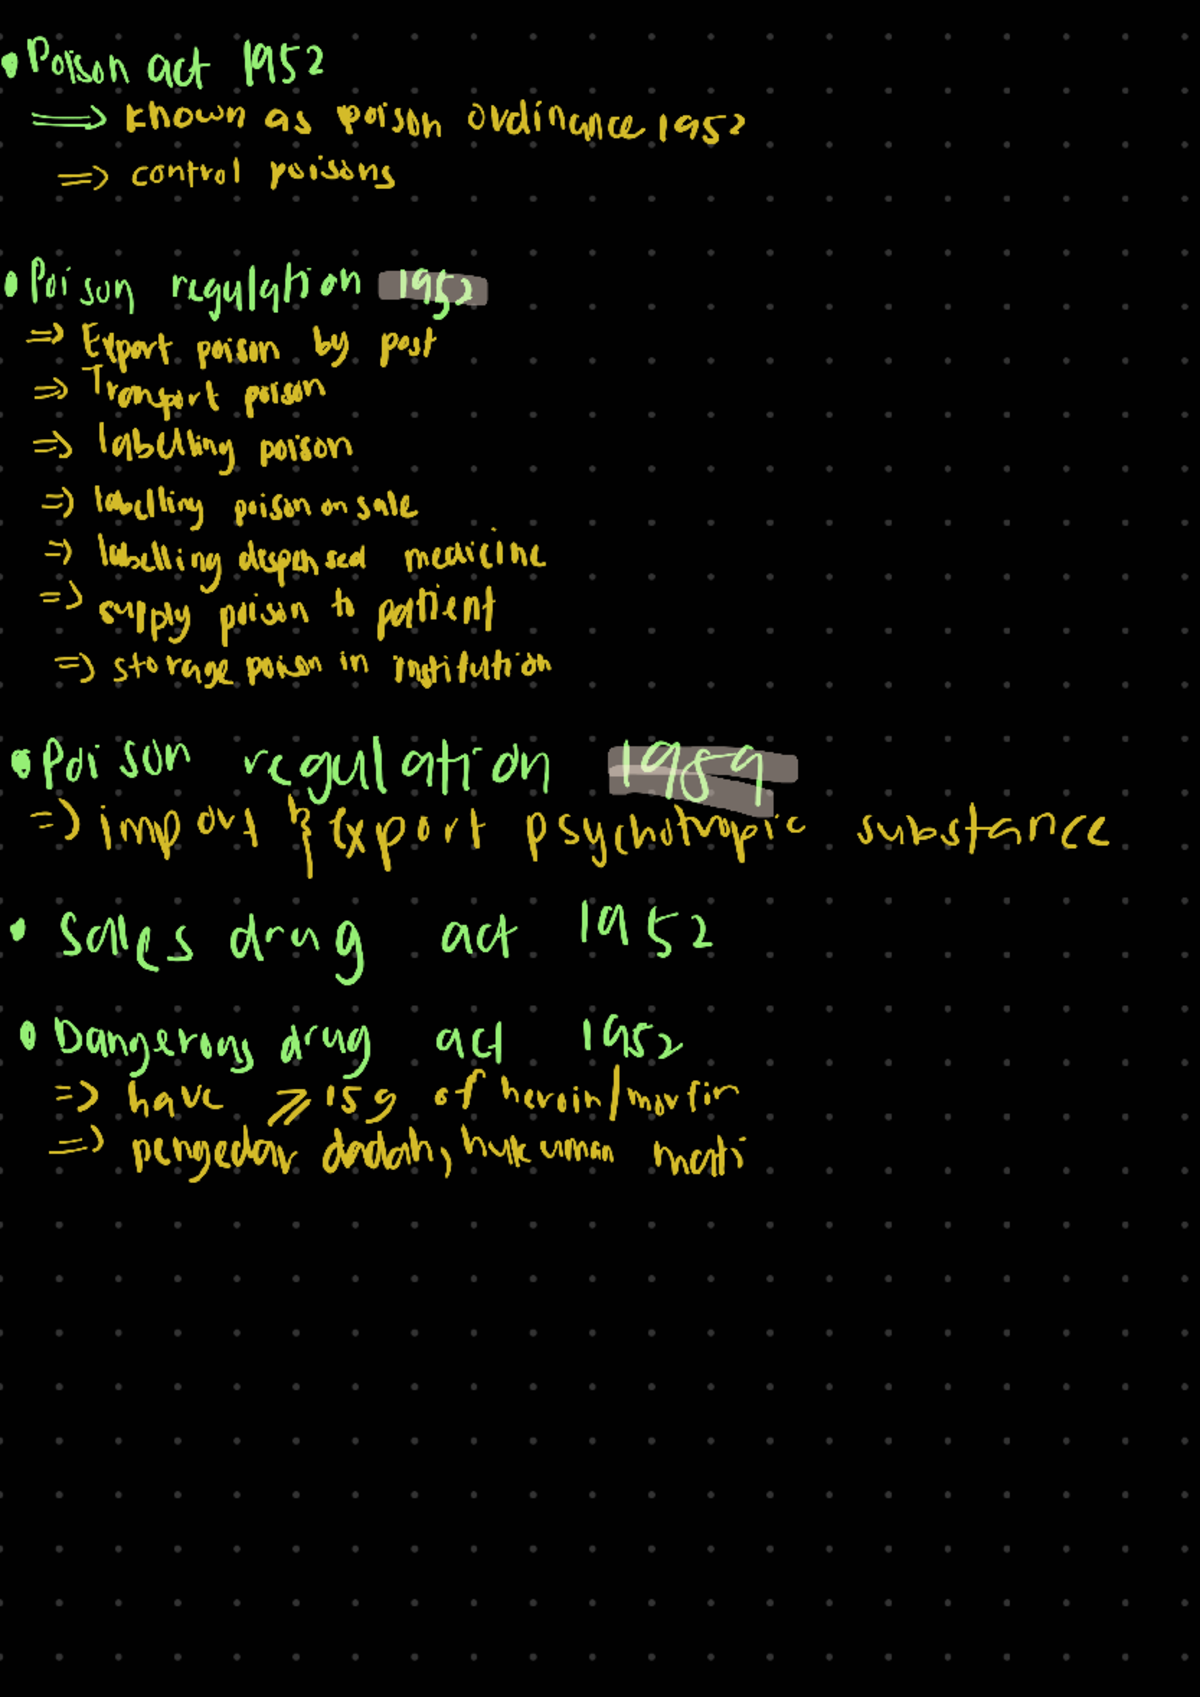 • Poison act 1952
⟹ known as poison ordinance 1952
⇒ control poisons
• Poison regulation 1952
⇒ Export poison by post
⇒ Transport poison
⇒ labelling poison
⇒ labelling poison on sale
⇒ labelling dispensed medicine
⇒ supply poison to patient
⇒ storage poison in institution
• Poison regulation 1989
⇒ import & export psychotropic substance
• Sales drug act 1952
• Dangerous drug act 1952
⇒ have ≥ 15g of heroin/morfin
⇒ pengedar dadah, hukuman mati